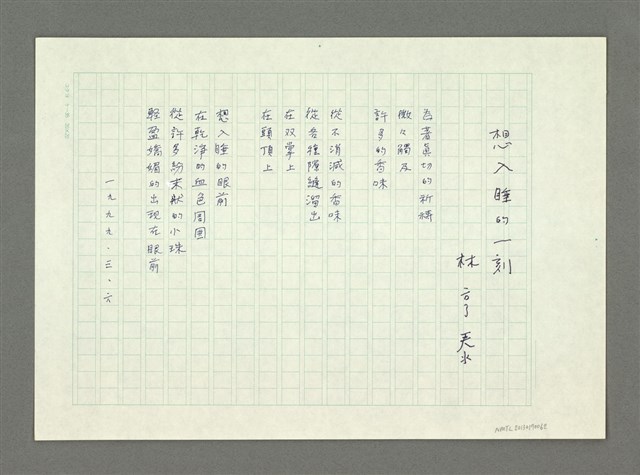 想入睡的一刻
林
為著真切的祈禱
微々觸及
許多的香味
從不消滅的香味
從各種隙縫溜出
在双掌上
在頭頂上
想入睡的眼前
在乾淨的血色周囲
從許多粉末狀的小珠
輕盈嬌媚的出現在眼前
一九九九．三．六